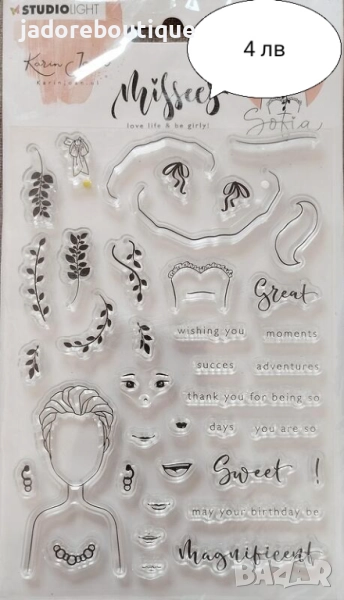 STUDIOLIGHT
jadoreboutique@gmail.com
4 лв
Karin Joan
Karinjoan.nl
Missees
love life & be girly!
Sofia
Great
wishing you
moments
succes
adventures
thank you for being so
days
you are so
Sweet !
may your birthday be
Magnificent
bazar